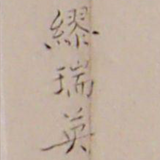 繆瑞英